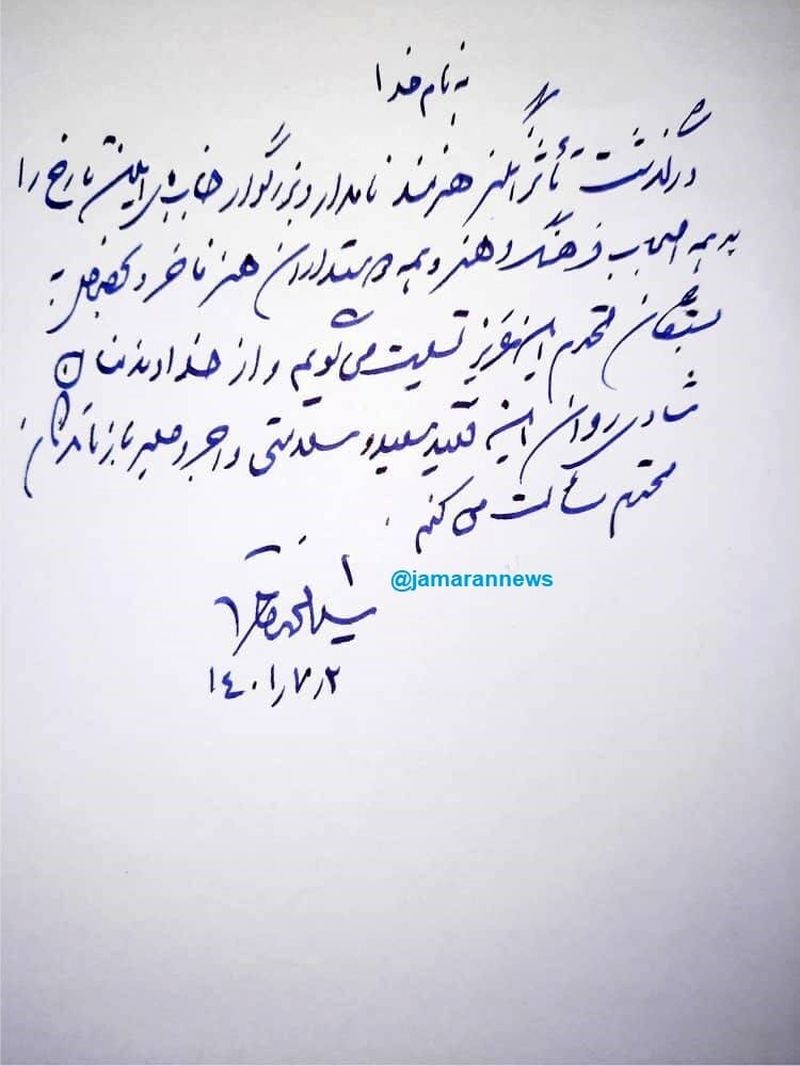 به نام خدا
درگذشت تأثرانگیز هنرمند نامدار و بزرگوار جناب آقای امین تارخ را
به همه اصحاب فرهنگ و هنر و همه دوستداران هنر فاخر و بخصوص به
بستگان محترم این عزیز تسلیت می گویم و از خداوند منان
شادی روان این فقید سعید و سلامتی و اجر و صبر بازماندگان
محترم مسألت می کنم.
سید محمد خاتمی
@jamarannews
۱۴۰۱/۷/۲